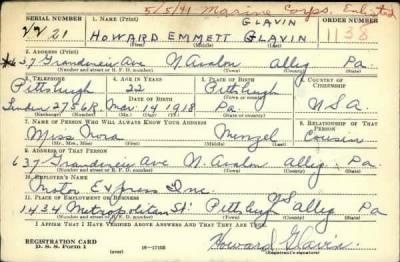 5/5/41 Marine Corps. Enlisted
SERIAL NUMBER 1. NAME (Print) GLAVIN ORDER NUMBER
21 HOWARD EMMETT GLAVIN 1138
(First) (Middle) (Last)
2. ADDRESS (Print)
637 Grandview Ave N. Avalon Alleg Pa.
(Number and street or R. F. D. number) (Town) (County) (State)
3. TELEPHONE 4. AGE IN YEARS 5. PLACE OF BIRTH 6. COUNTRY OF CITIZENSHIP
Pittsburgh 22 Pittsburgh
DATE OF BIRTH (Town or county)
2756R. Mar. 14 1918 Pa. U.S.A
(Exchange) (Number) (Mo.) (Day) (Yr.) (State or country)
7. NAME OF PERSON WHO WILL ALWAYS KNOW YOUR ADDRESS 8. RELATIONSHIP OF THAT PERSON
Miss Nora Menzel Cousin
(Mr., Mrs., Miss) (First) (Middle) (Last)
9. ADDRESS OF THAT PERSON
637 Grandview Ave N. Avalon Alleg. Pa
(Number and street or R. F. D. number) (Town) (County) (State)
10. EMPLOYER'S NAME
Motor Express Inc.
11. PLACE OF EMPLOYMENT OR BUSINESS NS
1434 Metropolitan St. Pittsburgh Alleg Pa
(Number and street or R. F. D. number) (Town) (County) (State)
I AFFIRM THAT I HAVE VERIFIED ABOVE ANSWERS AND THAT THEY ARE TRUE.
REGISTRATION CARD
D. S. S. Form 1 (over) 16-17105 Howard Glavin
(Registrant's signature)